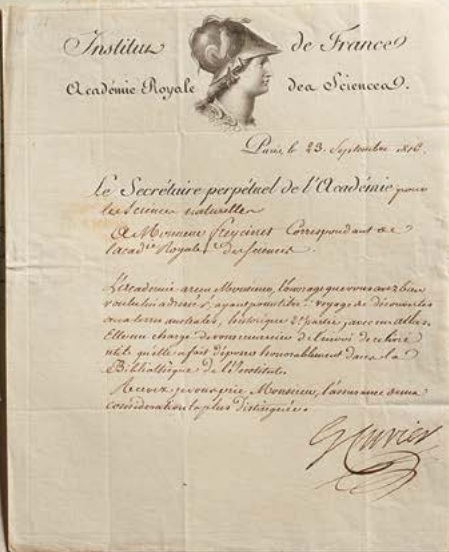 Institut de France
Académie Royale des Sciences.
Paris, le 23. Septembre 1816.
Le Secrétaire perpétuel de l'Académie pour
les Sciences naturelles
A Monsieur Freycinet Correspondant de
l'acad.ie Royale des Sciences.
L'Académie a reçu Monsieur, l'ouvrage que vous avez bien
voulu lui adresser, ayant pour titre: voyage de découvertes
aux terres australes, historique 2e partie, avec un atlas.
Elle me charge de vous remercier de l'envoi de ce livre
qu'elle a fait déposer honorablement dans la
Bibliothèque de l'Institut.
Recevez, je vous prie, Monsieur, l'assurance de ma
considération la plus distinguée.
G Cuvier